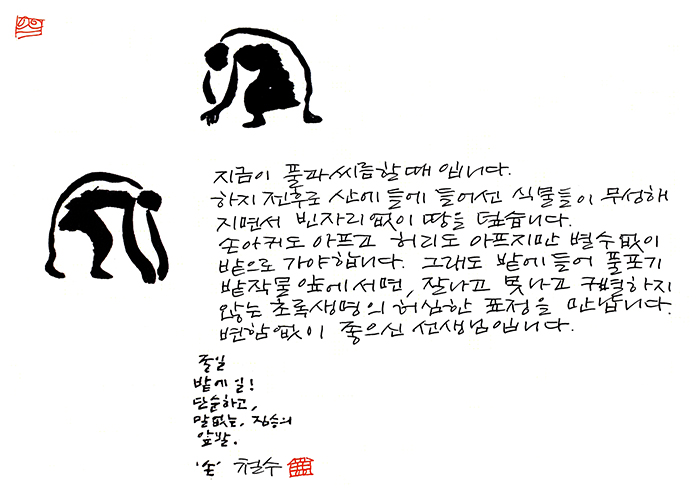 지금이 풀과 씨름할 때 입니다.
하지 전후로 산에 들에 들어선 식물들이 무성해
지면서 빈자리 없이 땅을 덮습니다.
손아귀도 아프고 허리도 아프지만 별수없이
밭으로 가야합니다. 그래도 밭에 들어 풀포기
밭작물 앞에 서면, 잘나고 못나고 구별하지
않는 초록생명의 허심한 표정을 만납니다.
변함없이 좋으신 선생님입니다.
풀일
밭에 일!
단순하고,
말없는, 짐승의
앞발.
'손' 철수